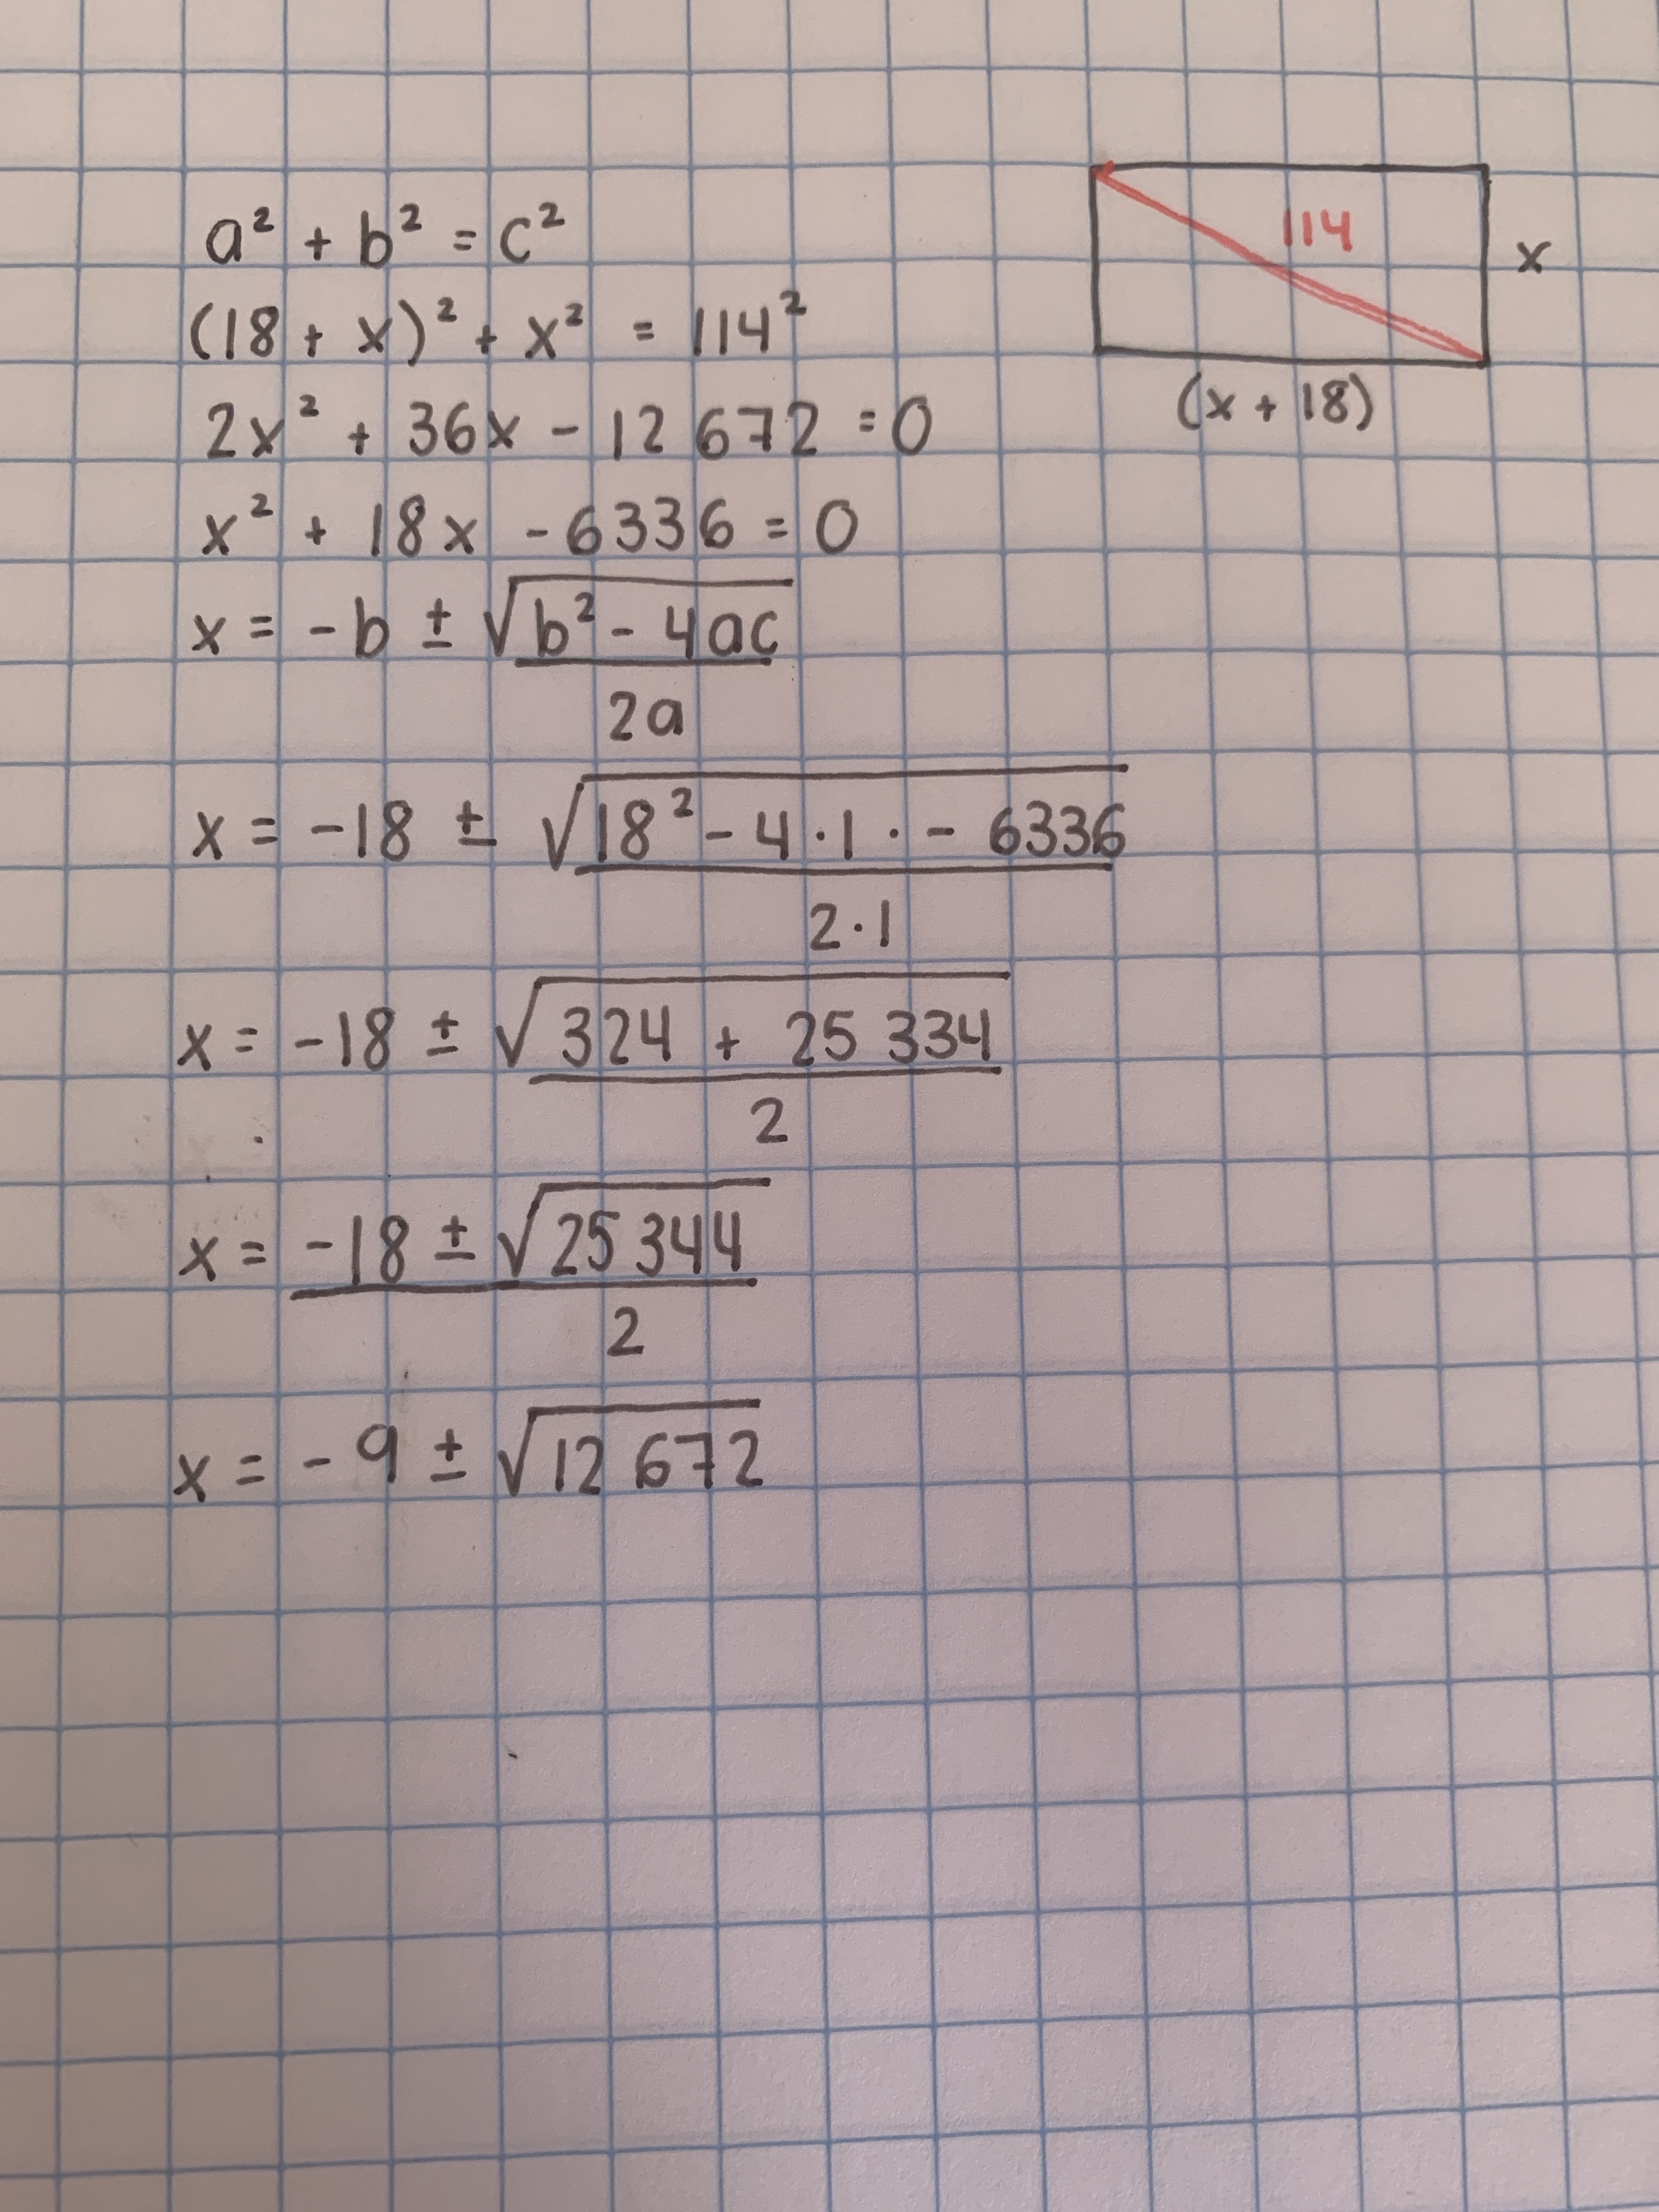 a² + b² = c²
(18 + x)² + x² = 114²
2x² + 36x - 12 672 = 0
x² + 18x - 6336 = 0
x = -b ± √b² - 4ac
2a
x = -18 ± √18² - 4 · 1 · - 6336
2 · 1
x = -18 ± √324 + 25 334
2
x = -18 ± √25 344
2
x = -9 ± √12 672
114
x
(x + 18)